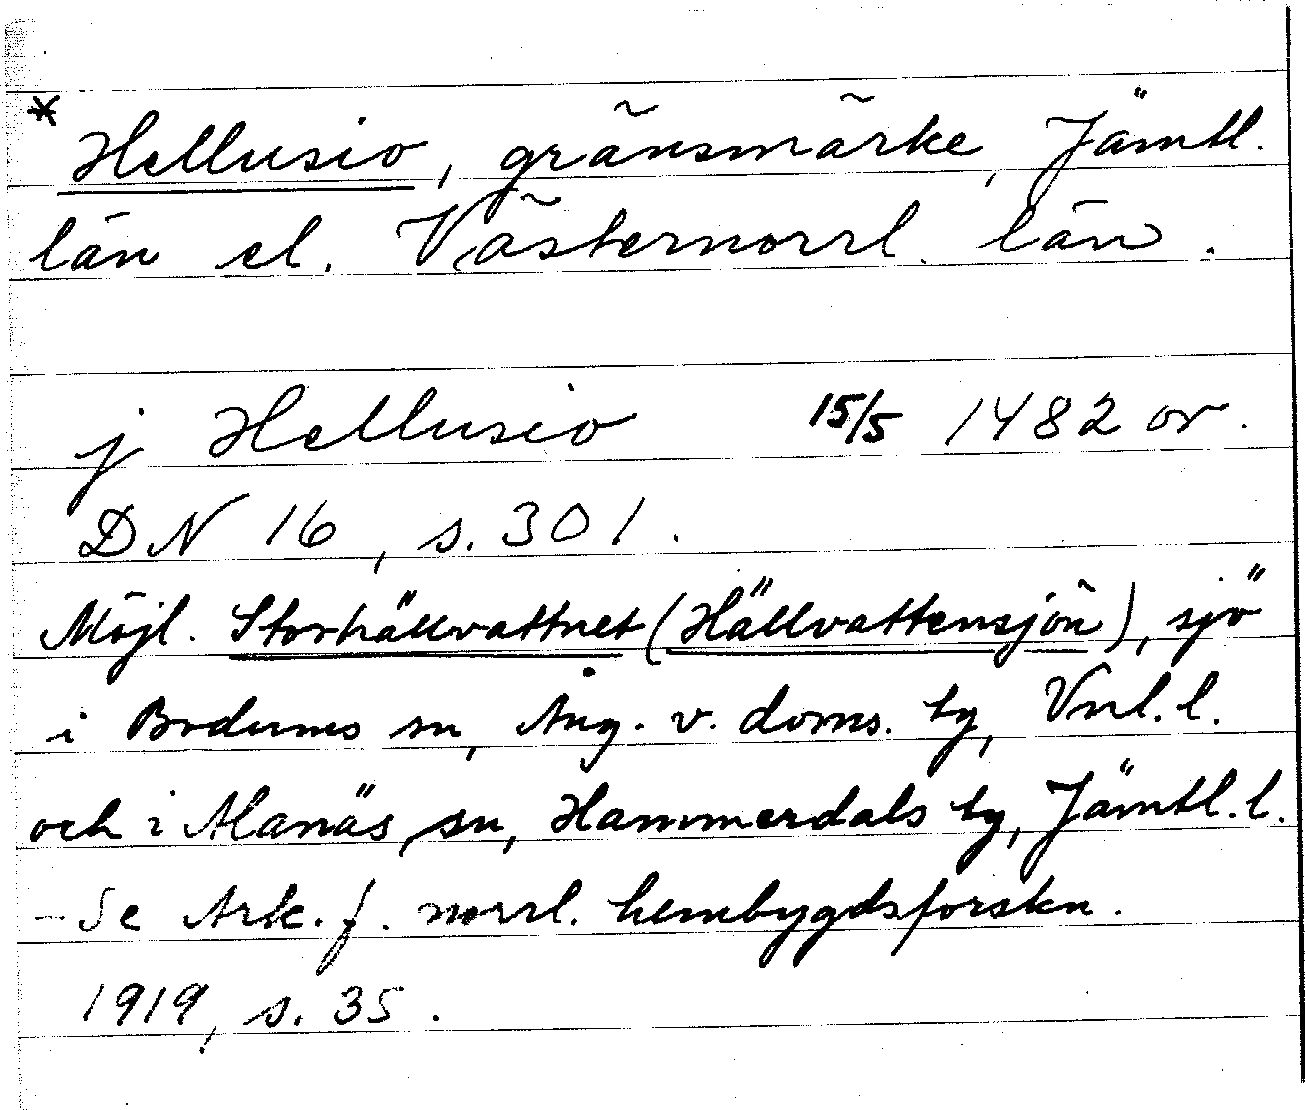 * Hellusio, gränsmärke, Jämtl.
län el. Västernorrl. län.
j Hellusio 15/5 1482 or.
DN 16, s. 301.
Möjl. Storhällvattnet (Hällvattensjön), sjö
i Bodums sn, Ång. v. doms. tg, Vnl. l.
och i Alanäs sn, Hammerdals tg, Jämtl. l.
– Se Ark. f. norrl. hembygdsforskn.
1919, s. 35.